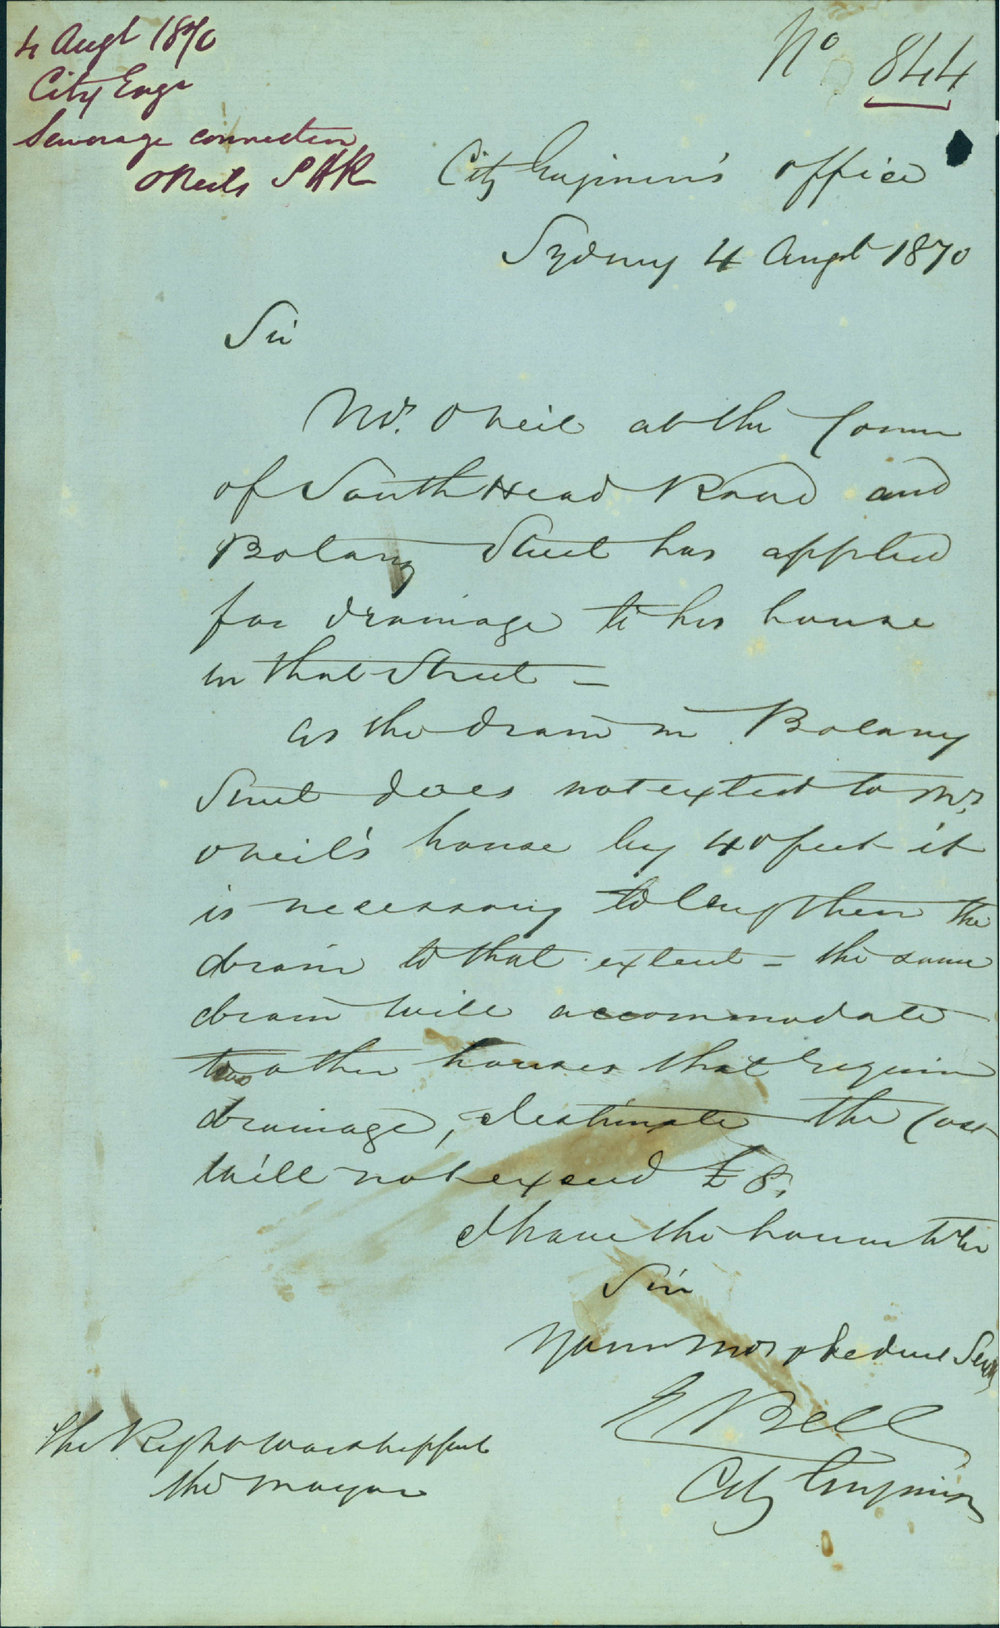 4 Augt 1870
City Engr
Sewerage connection
O'Neils S H R
No 844
City Engineer's office
Sydney 4 Augt 1870
Sir
Mr. O'Neil at the Corner
of South Head Road and
Botany Street has applied
for drainage to his house
in that Street –
As the drain in Botany
Street does not extend to Mr.
O'Neil's house by 40 feet it
is necessary to lengthen the
drain to that extent – the same
drain will accommodate
two other houses that require
drainage, I estimate the cost
will not exceed £8.
I have the honor to be
Sir
Your most obedient Servt
E Bell
City Engineer
The Right Worshipful
the Mayor